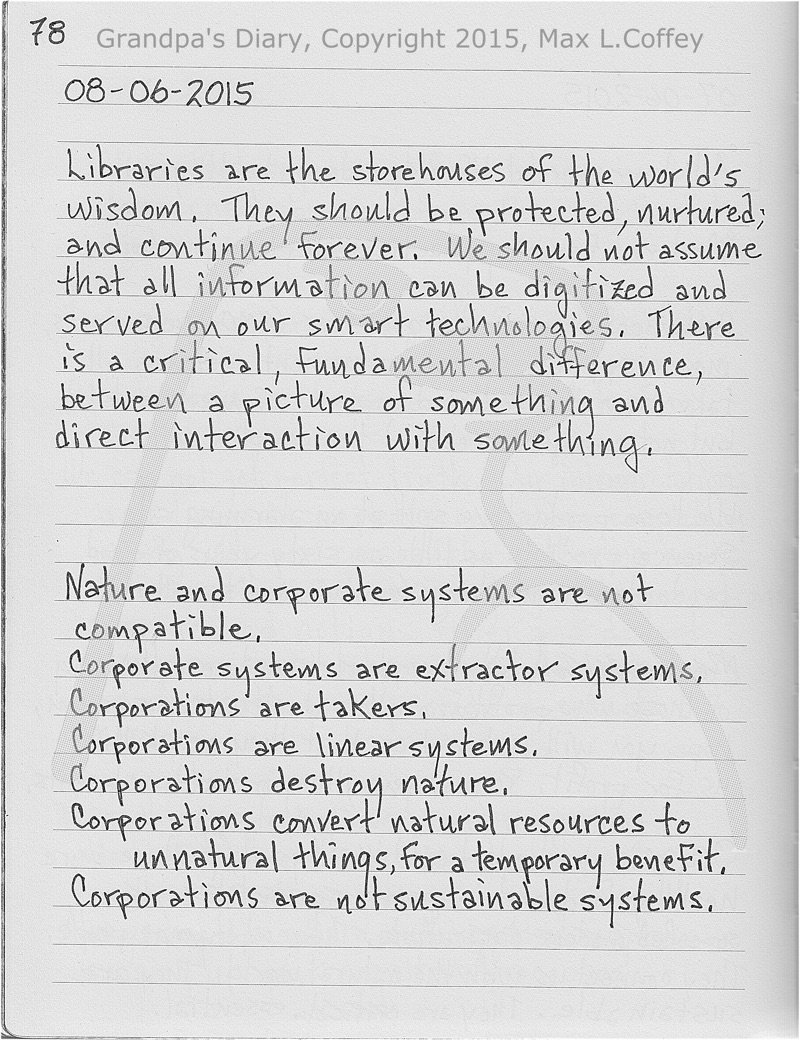 78
Grandpa's Diary, Copyright 2015, Max L.Coffey
08-06-2015
Libraries are the storehouses of the world's
wisdom. They should be protected, nurtured;
and continue forever. We should not assume
that all information can be digitized and
served on our smart technologies. There
is a critical, fundamental difference,
between a picture of something and
direct interaction with something.
Nature and corporate systems are not
compatible.
Corporate systems are extractor systems.
Corporations are takers.
Corporations are linear systems.
Corporations destroy nature.
Corporations convert natural resources to
unnatural things, for a temporary benefit.
Corporations are not sustainable systems.